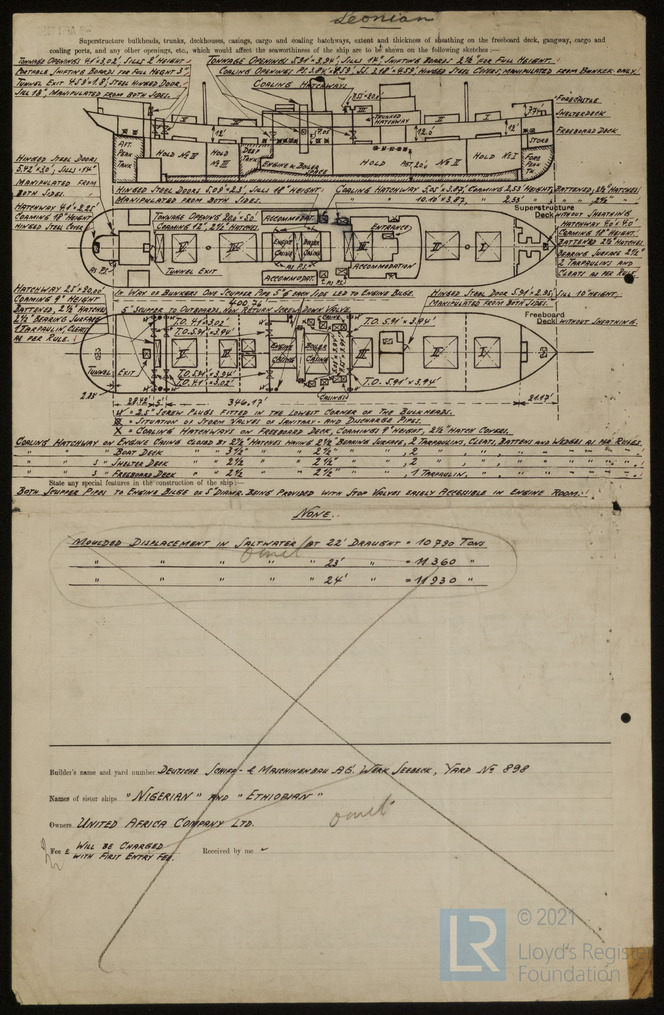 Leonian
Superstructure bulkheads, trunks, deckhouses, casings, cargo and coaling hatchways, extent and thickness of sheathing on the freeboard deck, gangway, cargo and
coaling ports, and any other openings, etc., which would affect the seaworthiness of the ship are to be shewn on the following sketches:—
Tonnage Openings 4.1×3.02', Sills 2' Height
Portable Shifting Boards for Full Height 3"
Tunnel Exit 4.53×1.8', Steel Hinged Door,
Sill 18", Manipulated from Both Sides.
Tonnage Openings 5.91'×3.94', Sills 14", Shifting Boards 2½ for Full Height.
Hinged Steel Covers, Manipulated from Bunker only!
Coaling Hatchway
Trunked
Hatchway
Forecastle
Shelterdeck
Freeboard Deck
Store
Aft.
Peak
Tank
Hold № IV
Hold
№ III
Deep
Tank
Engine & Boiler
Space
Hold
№ II
Hold № I
Fore
Peak
Hinged Steel Doors
5.42'×30', Sills
Manipulated
from
Both Sides.
Hatchway 4.1×2.25'
Coaming 18" Height
Hinged Steel Cover
Hinged Steel Doors 5.09'×2.3', Sills 18" Height
Manipulated from Both Sides.
Coaling Hatchway 5.05'×3.87', Coaming 2.53' Height, Battened, 2½ Hatches
" " 10.10'×3.87, " 2.33' " " 2½" "
Superstructure
Deck Without Sheathing
Hatchway 4.0'×4.0'
Coaming 18" Height.
Battened 2½ Hatches
Bearing Surface 2½"
2 Tarpaulins and
Cleats as per Rule
Tonnage Opening 20.0×5.0'
Coaming 12", 2½" Hatches
Accommodat.
Entrance
Engine
Casing
Boiler
Casing
Tunnel Exit
Accommodat.
Accommodation
Hatchway 25'×20.00'
Coaming 9" Height
Battened, 2½" Hatches
2½" Bearing Surface
1 Tarpaulin, Cleats
as per Rule.
In Way of Bunkers One Scupper Pipe 5" ø each Side led to Engine Bilge.
400,76
5" Scupper to Outboard, Non Return Screw Down Valve.
Hinged Steel Door 5.91'×2.95', Sill 10" Height
Manipulated from Both Sides.
Freeboard
Deck Without Sheathing.
T.O. 4.1×3.02
T.O. 5.91'×3.94'
T.O. 5.91'×3.94'
Engine
Casing
Boiler
Casing
Tunnel Exit
T.O. 5.91'×3.94'
T.O. 4.1'×3.02'
T.O. 5.91'×3.94'
346.17'
21.17'
= 2.5" Screw Plugs Fitted in the Lowest Corner of the Bulkheads.
= Situation of Storm Valves of Sanitary- and Discharge Pipes.
X = Coaling Hatchways on Freeboard Deck, Coamings 9" Height, 2½" Hatch Covers.
Coaling Hatchway on Engine Casing Closed by 2½" Hatches Having 2½" Bearing Surface, 2 Tarpaulins, Cleats, Battens and Wedges as per Rules.
" " " Boat Deck " " 3½" " " 2½" " " , 2 " , " , " " " " "
" " 3 " Shelter Deck " " 2½ " " 2½" " " , 2 " , " , " " " " "
" " 5 " Freeboard Deck " " 2½ " " 2½" " " , 1 Tarpaulin, " , " " " " "
State any special features in the construction of the ship:—
Both Scupper Pipes to Engine Bilge of 5" Diamr. Being Provided with Stop Valves easely Accessible in Engine Room.
None.
Moulded Displacement in Saltwater at 22' Draught = 10790 Tons
" " " " " 23' " = 11360 "
" " " " " 24' " = 11930 "
omit
Builder's name and yard number Deutsche Schiff- & Maschinenbau A.G. Werk Seebeck, Yard № 898
Names of sister ships "Nigerian" and "Ethiopian"
Owners United Africa Company Ltd.
omit
Fee £ Will be Charged
with First Entry Fee.
Received by me
LR
© 2021
Lloyd's Register
Foundation